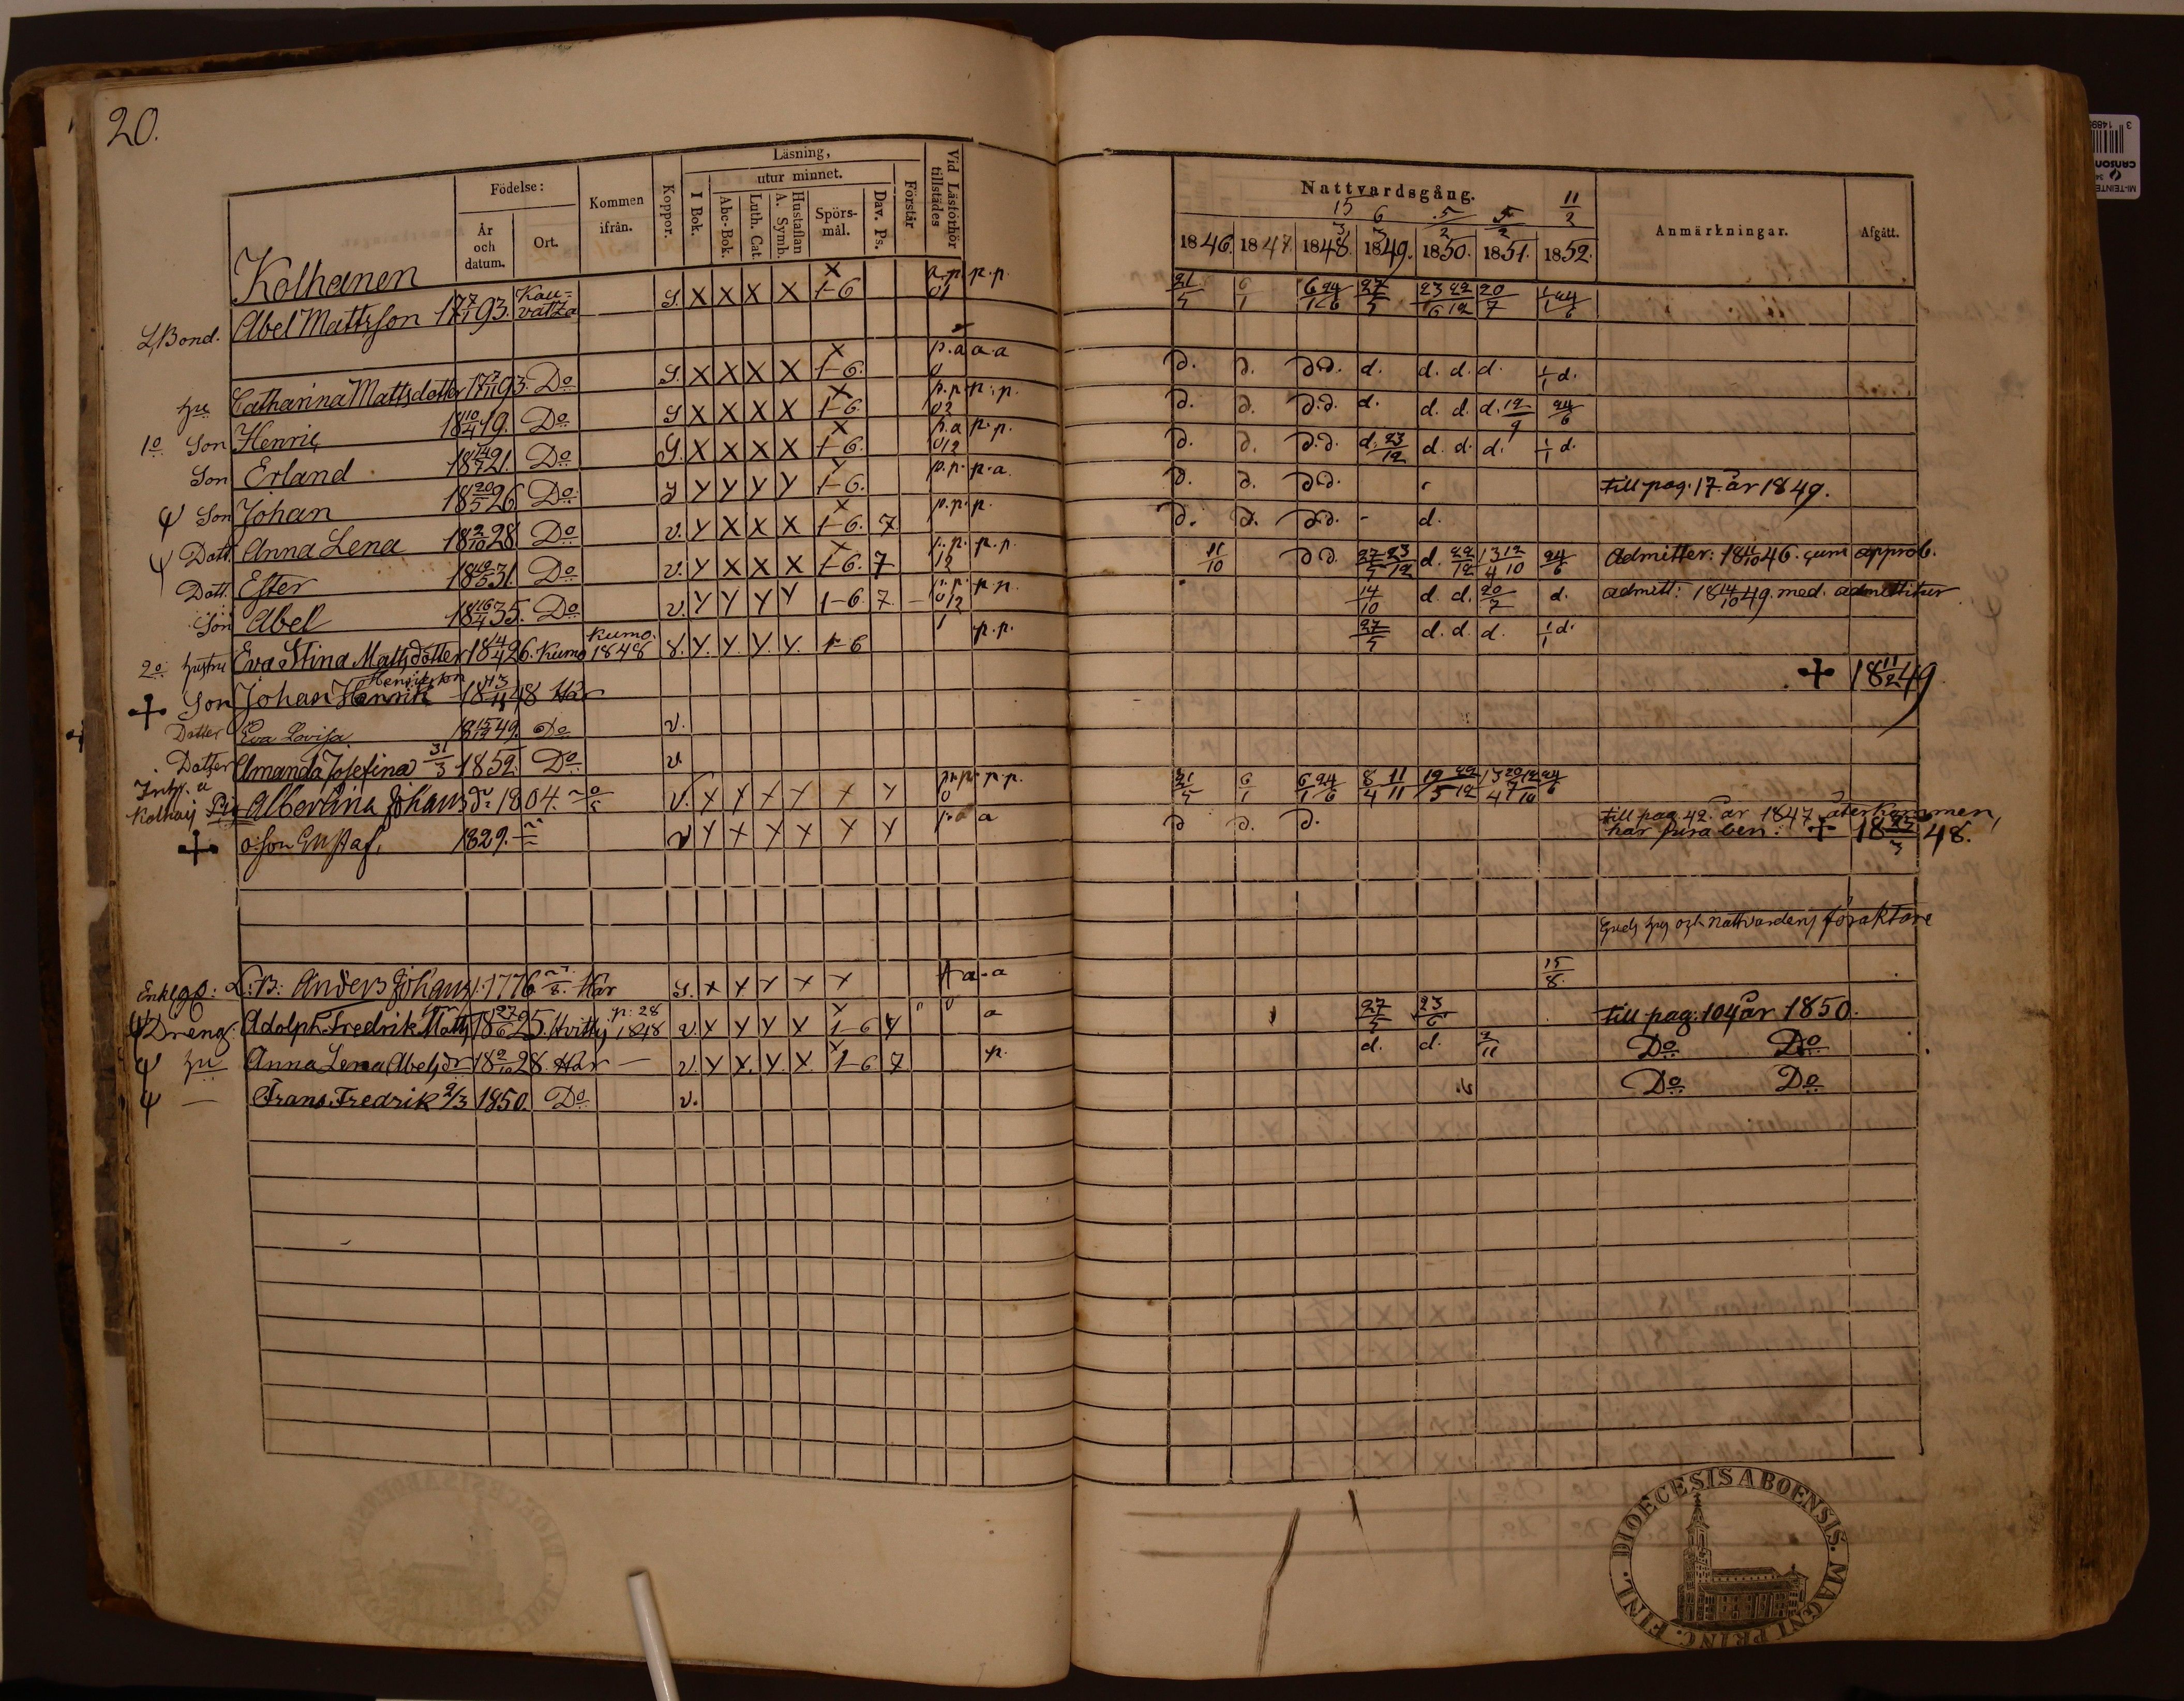 20.
Födelse: Kommen ifrån. Koppor. Läsning, Vid Läsförhör tillstädes
År och datum. Ort. I Bok. utur minnet. Förstår
Abc-Bok. Luth. Cat. Hustaflan A. Symb. Spörsmål. Dav. Ps.
Nattvardsgång. Anmärkningar. Afgått.
15/3 6/3 5/2 5/2 11/2
1846. 1847. 1848. 1849. 1850. 1851. 1852.
Kolhanen
L Bond. Abel Mattsson 17 7/1 93. Kau=vatza S. X X X X 1-6 p.p. 21/5 6/1 6/1 24/6 27/5 23/6 22/12 20/7 1/1 24/6
hu Catharina Mattsdotter 17 7/11 93. Do S. X X X X 1-6. p.a a.a d. d. d.d. d. d. d. d. 1/1 d.
1o Son Henric 18 10/4 19. Do S X X X X 1-6. p.p. p.p. d. d. d.d. d. d. d. d. 12/9 24/6
Son Erland 18 14/7 21. Do S. X X X X 1-6. p.a p.p. d. d. d.d. d. 23/12 d. d. d. 1/1 d.
Son Johan 18 20/5 26 Do S Y Y Y Y 1-6. p.p. p.a. d. d. d.d. till pag. 17. år 1849.
Dott. Anna Lena 18 2/10 28 Do v. Y X X X 1-6. 7 p.p. p. d. d. d.d. - d.
Dott. Ester 18 19/5 31. Do v. Y X X X 1-6. 7 p.p. 11/10 d d. 27/5 23/12 d. 22/12 13/4 12/10 24/6 Admitter: 18 11/10 46. cum approb.
Son Abel 18 16/4 35. Do v. Y Y Y Y 1-6 7. p.p. 14/10 d. d. 20/7 d. admitt: 18 14/10 49. med. admittitur
2o hustru Eva Stina Mattsdotter 18 14/4 26. Kumo Kumo. 1848 S. Y. Y. Y. Y. 1-6 p.p. 27/5 d. d. d. 1/1 d.
Son Johan Henriksson 18 13/11 48 Här + 18 11/2 49
Dotter Eva Lovisa 18 15/12 49. Do v.
Dotter Amanda Josefina 31/3 1852. Do v.
Inhys. a Kolhais Pig Albertina Johansdr. 1804. v. Y Y Y Y Y Y p.p. p.p. 21/5 6/1 6/1 24/6 8/4 11/11 19/5 22/12 24/6
o: son Gustaf, 1829. v Y Y Y Y Y Y a d d. d. till pag. 42. år 1847. återkommen,
har fura ben: + 18 3 48.
Guds hus och Nattvardens föraktare
L:B: Anders Johans. 1776 Här S. X Y Y Y Y a-a 15/8.
Dreng: Adolph Fredrik Matts 18 27/6 25. Hvittis p: 28 1848 v. Y Y Y Y 1-6 Y a 27/5 23/6 till pag. 104 år 1850.
hu Anna Lena Abelsdr 18 2/10 28. Här — v. Y Y. Y. X. 1-6 7 p. d. d. 2/11 Do Do
— Frans Fredrik 9/3 1850. Do v. Do Do
DIOECESIS ABOENSIS. MAGNI PRINC. FINL.